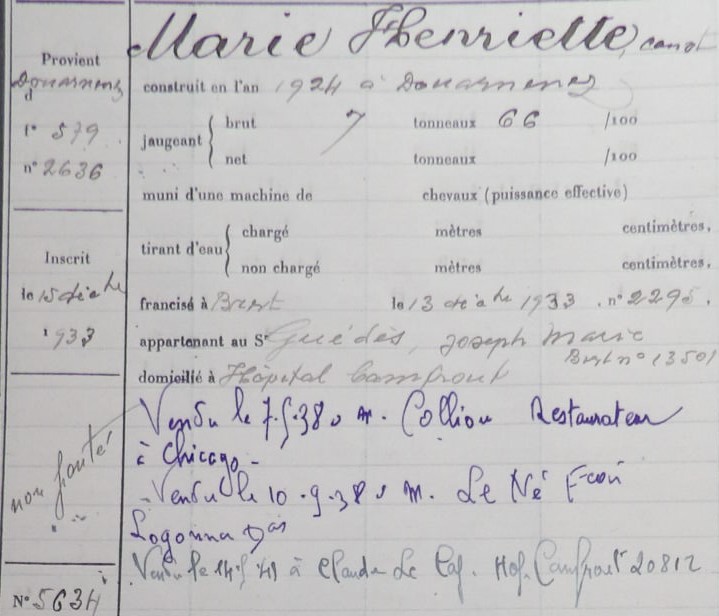 Marie Henriette, canot
Provient
Douarnenez
d
construit en l'an 1924 à Douarnenez
f° 579
n° 2636
jaugeant { brut 7 tonneaux 66 /100
net tonneaux /100
muni d'une machine de chevaux (puissance effective)
tirant d'eau { chargé mètres centimètres.
non chargé mètres centimètres.
Inscrit
le 15 déc bre
1933
francisé à Brest le 13 déc bre 1933. n° 2295.
appartenant au Sr Guédès, Joseph Marie
Brest n° 13501
domicilié à Hôpital Camfrout
Vendu le 7.5.38 à M. Colliou Restaurateur
à Chicago -
- Vendu le 10.9.38 à M. Le Né Fcois
Logonna Das
Vendu le 14.5.41 à Claude Le Hop. Camfrout 20812
non ponté
N° 5634